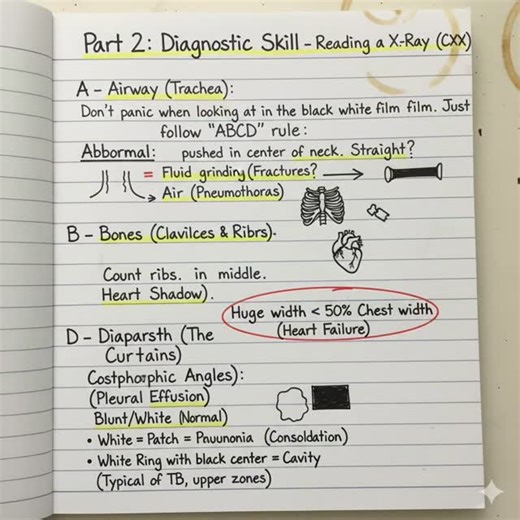 Part 2: Diagnostic Skill – Reading a X-Ray (CXX)
A – Airway (Trachea):
Don't panic when looking at in the black white film film. Just
follow "ABCD" rule:
Abbormal: pushed in center of neck. Straight?
= Fluid grinding (Fractures?
Air (Pneumothoras)
B – Bones (Clavilces & Ribrs).
Count ribs. in middle.
Heart Shadow).
Huge width < 50% Chest width
(Heart Failure)
D – Diaparsth (The
Curtains)
Costphorphic Angles):
(Pleural Effusion)
Blunt/White (Normal)
• White = Patch = Pnuunonia (Consoldation)
• White Ring with black center = Cavity
(Typical of TB, upper zones)